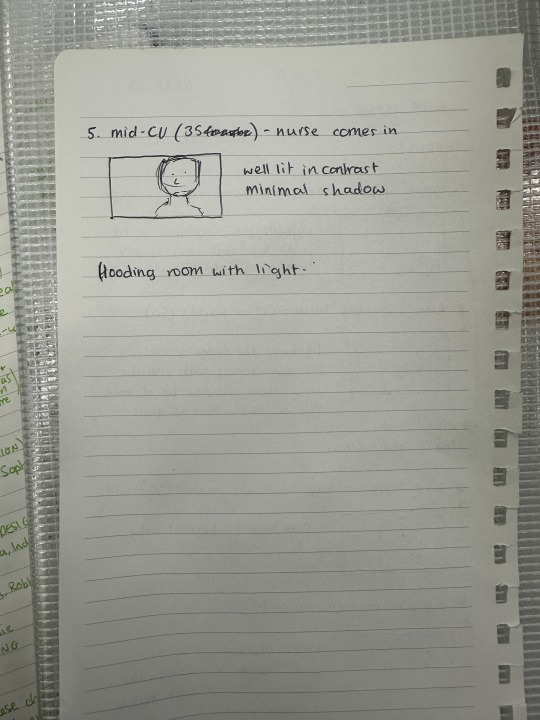 5. mid-CU (35) - nurse comes in
well lit in contrast
minimal shadow
flooding room with light.